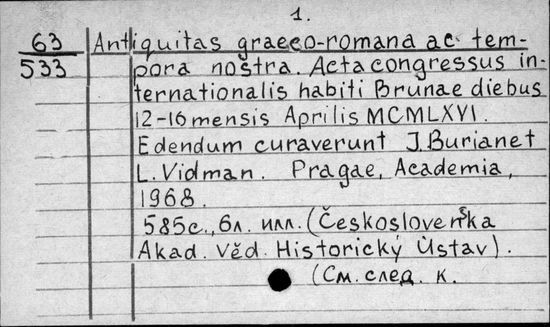 1.
63 Antiquitas graeco-romana ac tem-
533 pora nostra. Acta congressus in-
ternationalis habiti Brunae diebus
12-16 mensis Aprilis MCMLXVI.
Edendum curaverunt J. Burian et
L. Vidman. Pragae, Academia,
1968.
585с., 6л. илл. (Československa
Akad. Věd. Historický Ústav).
(См. след. к.